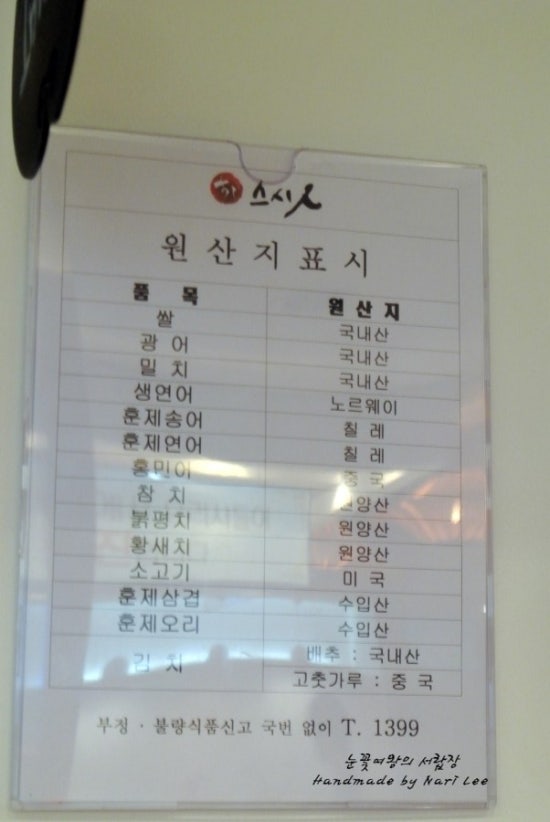 스시人
원산지표시
품 목 원 산 지
쌀 국내산
광 어 국내산
밀 치 국내산
생연어 노르웨이
훈제송어 칠 레
훈제연어 칠 레
홍민어 중 국
참 치 원양산
붉평치 원양산
황새치 원양산
소고기 미 국
훈제삼겹 수입산
훈제오리 수입산
김 치 배추 : 국내산
고춧가루 : 중 국
부정 · 불량식품신고 국번 없이 T. 1399
눈꽃여왕의 서랍장
Handmade by Nari Lee